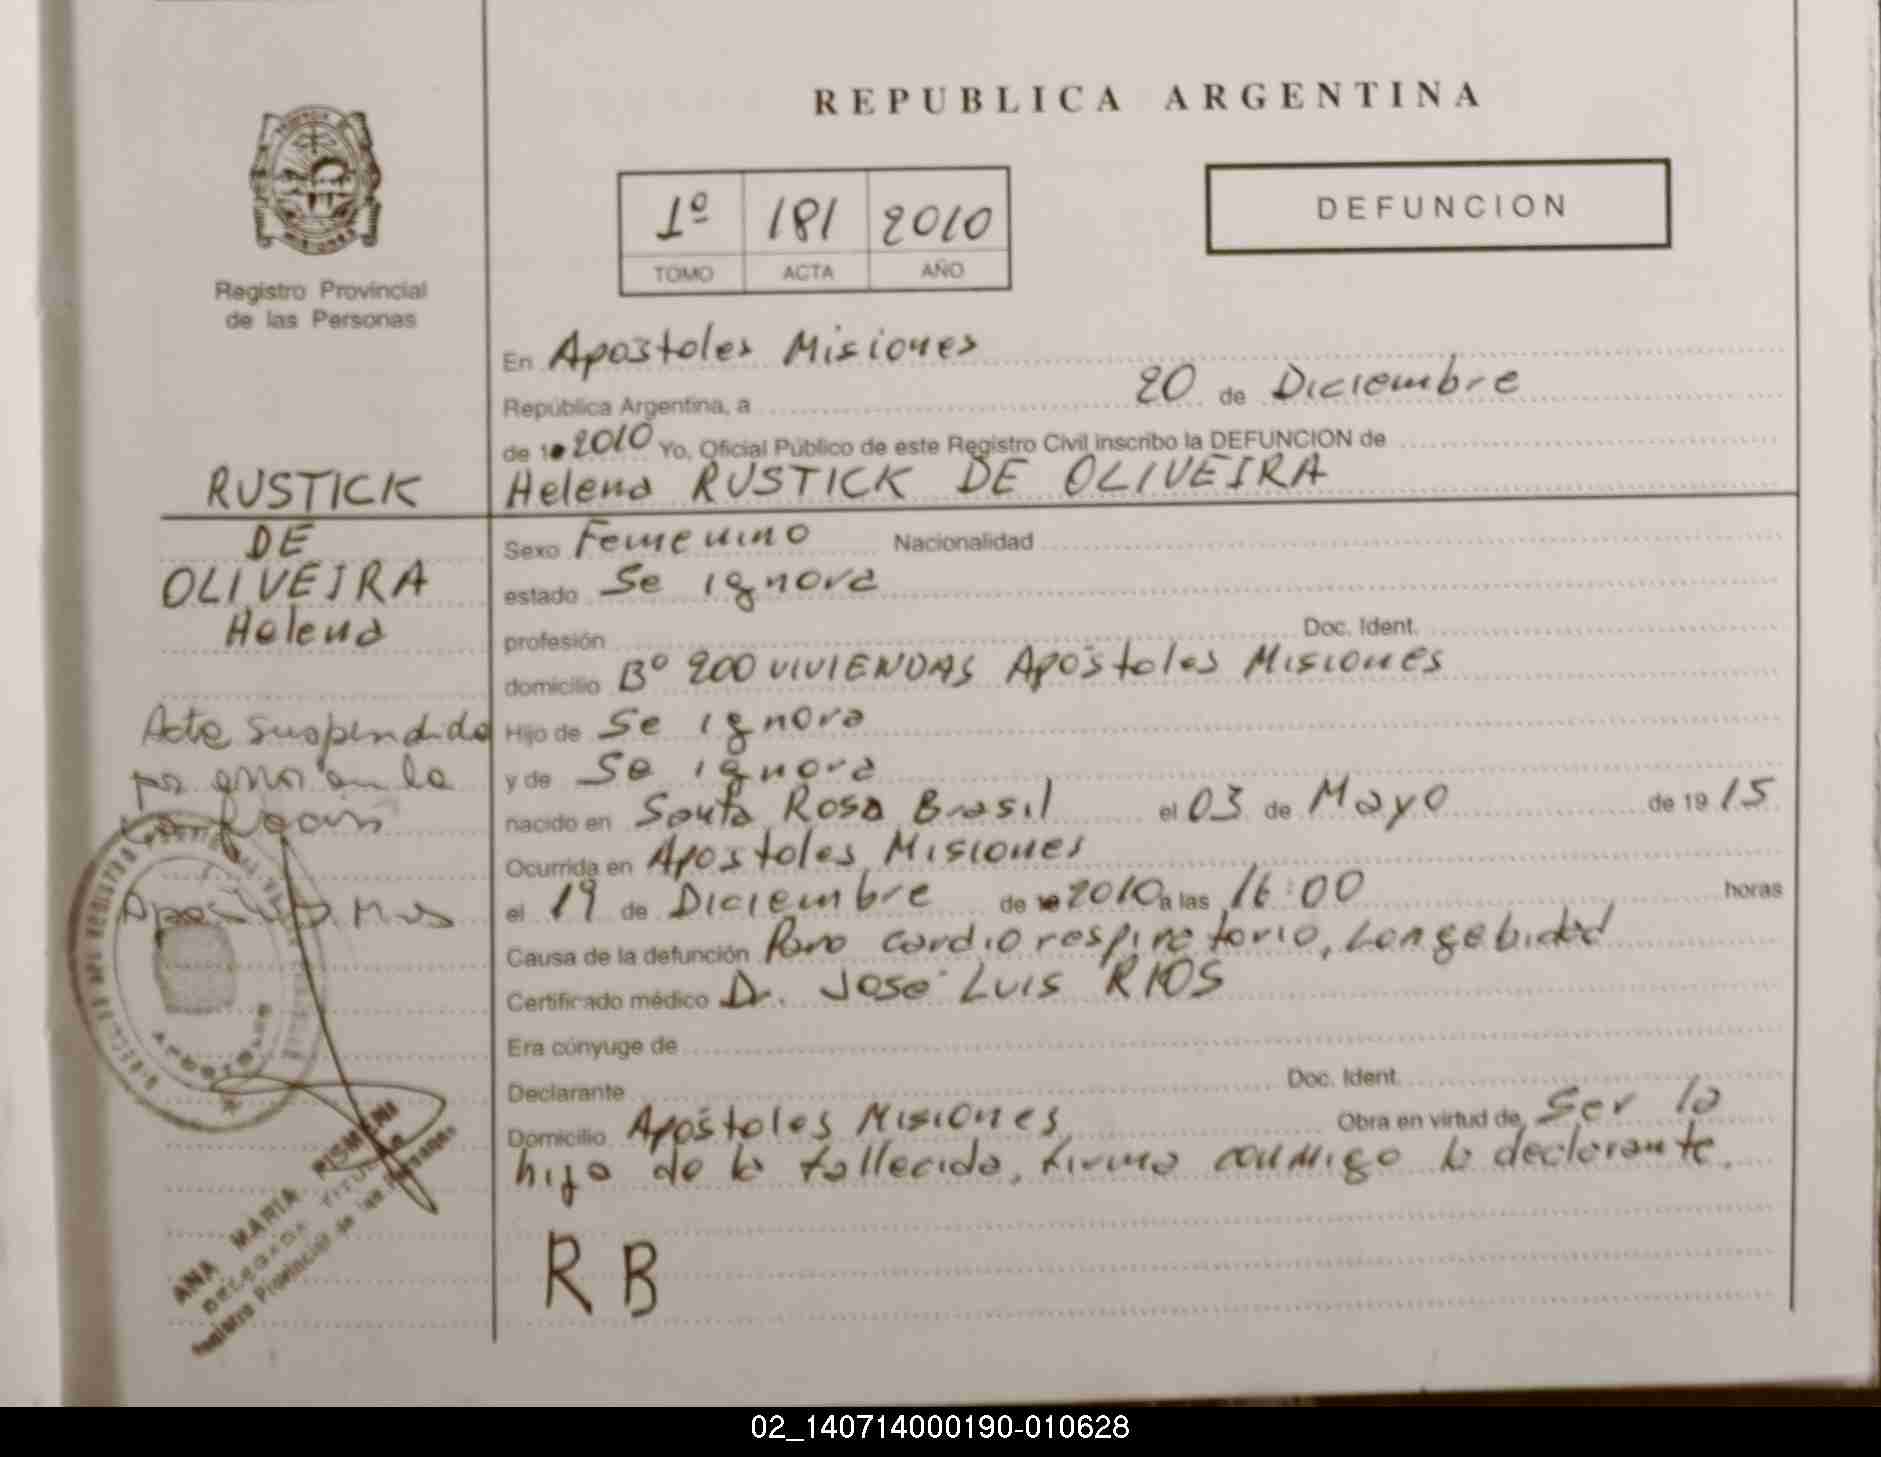 REPUBLICA ARGENTINA
1º 181 2010
TOMO ACTA AÑO
DEFUNCION
Registro Provincial
de las Personas
En Apostoles Misiones
República Argentina, a 20 de Diciembre
de 19 2010 Yo, Oficial Público de este Registro Civil inscribo la DEFUNCION de
Helena RUSTICK DE OLIVEIRA
Sexo Femenino Nacionalidad
estado Se ignora
profesión Doc. Ident.
domicilio Bº 200 VIVIENDAS Apóstoles Misiones
Hijo de Se ignora
y de Se ignora
nacido en Santa Rosa Brasil el 03 de Mayo de 19 15
Ocurrida en Apostoles Misiones
el 19 de Diciembre de 19 2010 a las 16:00 horas
Causa de la defunción Paro cardiorespiratorio, Longebidad
Certificado médico Dr. José Luis RIOS
Era cónyuge de
Declarante Doc. Ident.
Domicilio Apóstoles Misiones Obra en virtud de Ser la
hija de la fallecida, firma conmigo la declarante.
R B
RUSTICK
DE
OLIVEIRA
Helena
Acta suspendida
por error en la
Apostoles, Mnes
APOSTOLES
ANA MARIA
DELEGADA TITULAR
Registro Provincial de las Personas
02_140714000190-010628